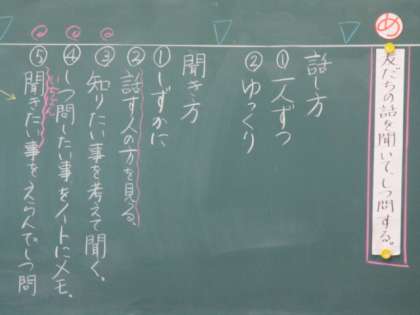 め
友だちの話を聞いて、しつ問する。
話し方
①一人ずつ
②ゆっくり
聞き方
①しずかに
②話す人の方を見る。
③知りたい事を考えて聞く。
④しつ問したい事をノートにメモ。
⑤聞きたい事をえらんでしつ問